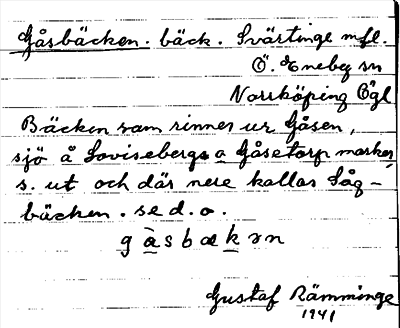 Gåsbäcken. bäck. Svärtinge mfl.
Ö. Eneby sn
Norrköping Ögl
Bäcken som rinner ur Gåsen,
sjö å Lovisebergs o Gåsetorp marker,
s. ut och där nere kallas Såg-
bäcken. se d. o.
gåsbækɘn
Gustaf Rämminge
1941